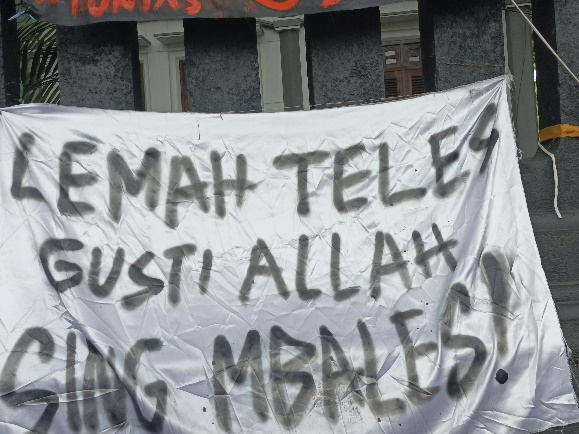 LEMAH TELES
GUSTI ALLAH
SING MBALES!